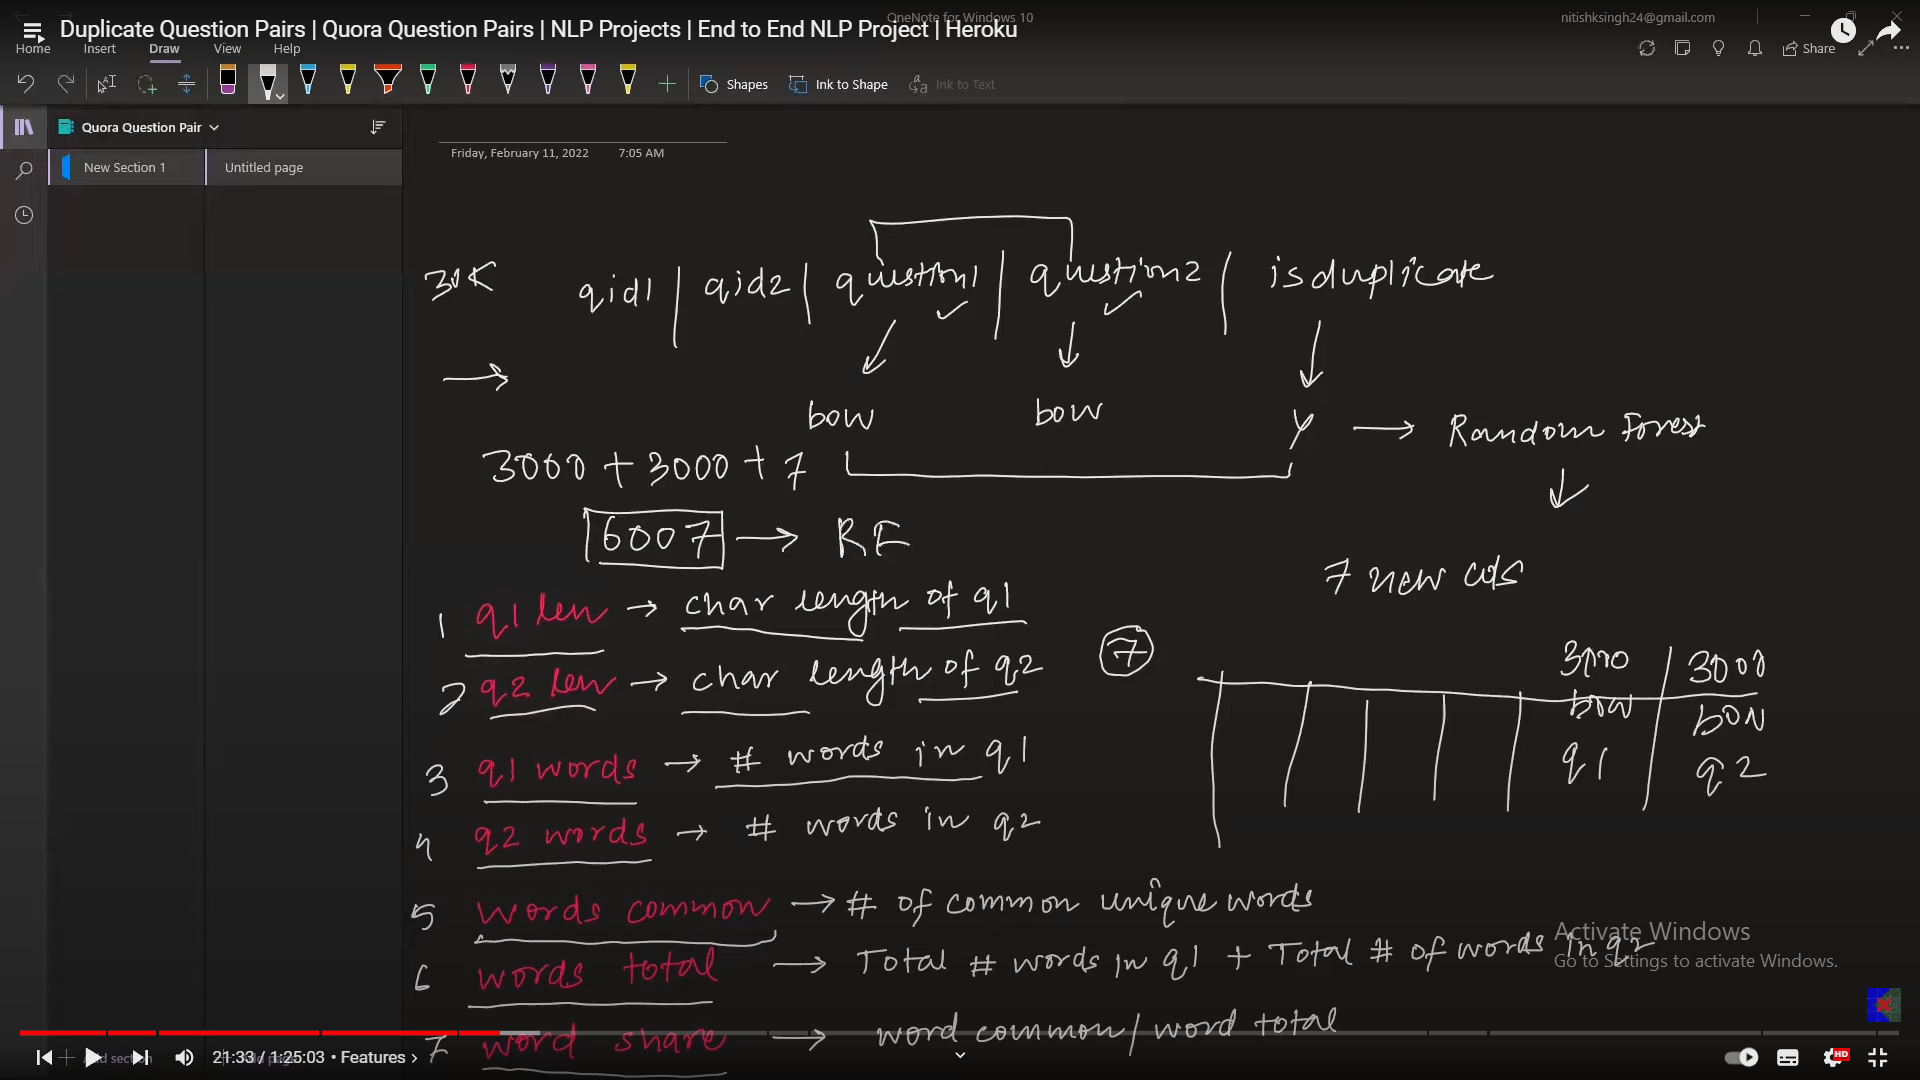 Duplicate Question Pairs | Quora Question Pairs | NLP Projects | End to End NLP Project | Heroku
OneNote for Windows 10
nitishksingh24@gmail.com
Home Insert Draw View Help
Share
Shapes Ink to Shape Ink to Text
Quora Question Pair
New Section 1
Untitled page
Friday, February 11, 2022 7:05 AM
30K qid1 | qid2 | question1 | question2 | isduplicate
bow bow y → Random Forest
3000 + 3000 + 7
6007 → RF
7 new cols
1 q1 len → char length of q1
2 q2 len → char length of q2
7
3000 | 3000
bow bow
q1 q2
3 q1 words → # words in q1
4 q2 words → # words in q2
5 words common → # of common unique words
6 words total → Total # words in q1 + Total # of words in q2
7 word share → word common / word total
Activate Windows
Go to Settings to activate Windows.
21:33 / 1:25:03 • Features
HD